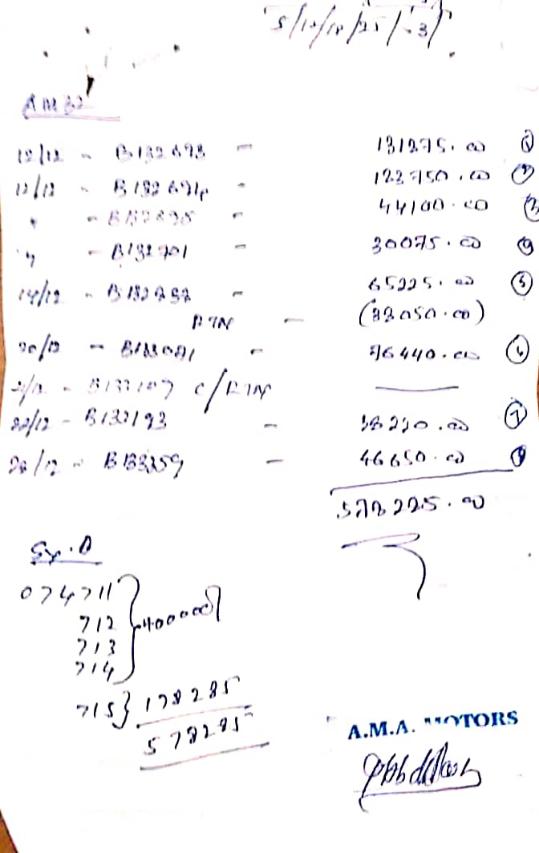 5/12/18/25/-3)
AM32
12/12 - B132693 - 131275.00 ①
12/12 - B132694 - 123750.00 ②
" - 44100.00 ③
" - B132701 - 30075.00 ④
19/12 - - 65225.00 ⑤
RTN - (33050.00)
20/12 - B133091 - 76440.00 ⑥
B133107 C/RTN ———
22/12 - B133193 - ⑦
26/12 - B133359 - 46650.00 ⑧
578225.00
074711
712
713
714 } 400000/
715} 178285
578285
A.M.A. MOTORS